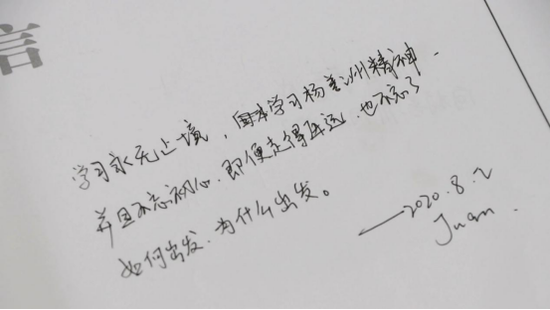 信
学习永无止境，周末学习杨善洲精神.
并且不忘初心.即便走得再远.也不忘了
如何出发.为什么出发。
—2020.8.2
Juan.